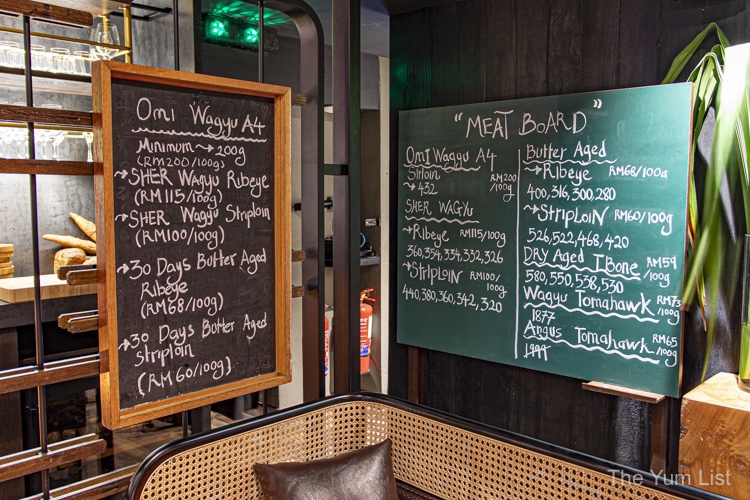 Omi Wagyu A4
Minimum → 200g
(RM200/100g)
→ SHER Wagyu Ribeye
(RM115/100g)
→ SHER Wagyu Striploin
(RM100/100g)
→ 30 Days Butter Aged
Ribeye
(RM68/100g)
→ 30 Days Butter Aged
striploin
(RM60/100g)
"MEAT BOARD"
OMI WAGYU A4
Striploin RM200/100g
→ 432
SHER WAGYU
→ Ribeye RM115/100g
360,354,334,332,326
→ Striploin RM100/100g
440,380,360,342,320
Butter Aged
→ Ribeye RM68/100g
400,316,300,280
→ StripLoiN RM60/100g
526,522,468,420
DRY Aged I Bone RM59/100g
580,550,538,530
Wagyu Tomahawk RM73/100g
1877
Angus Tomahawk RM65/100g
The Yum List